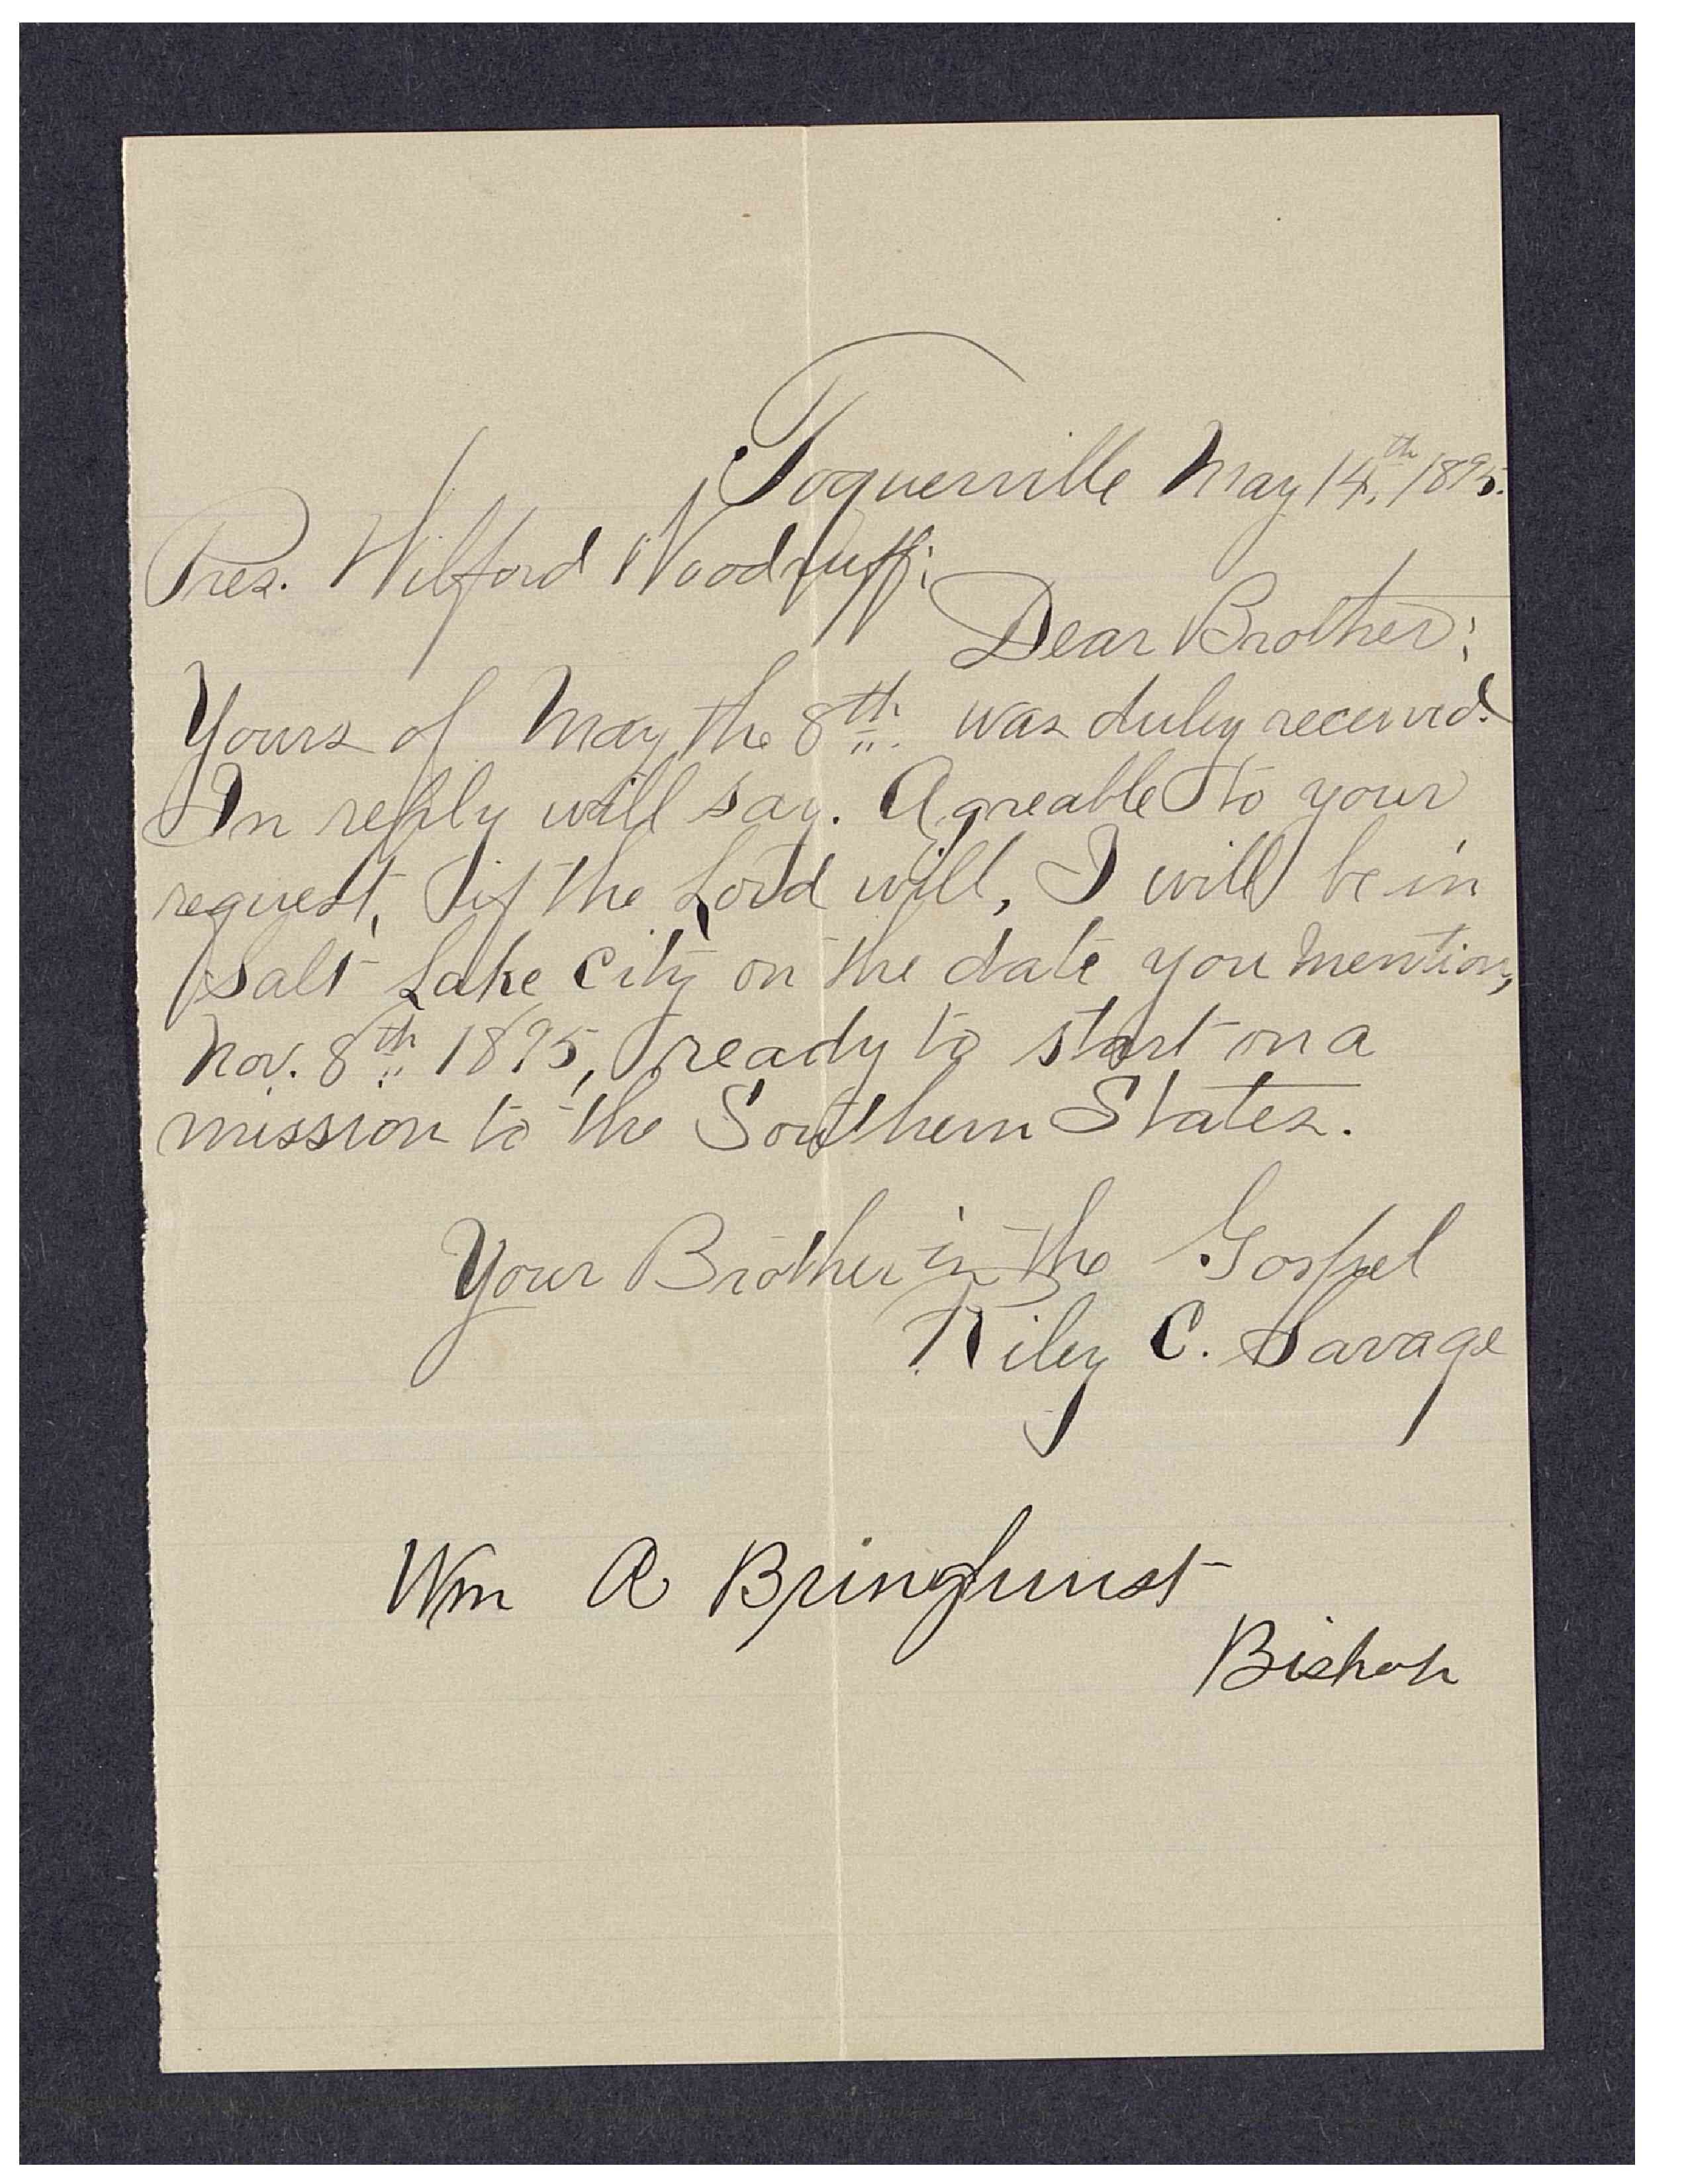 Toquerville May 14th, 1895.
Pres. Wilford Woodruff:
Dear Brother:
Yours of May the 8th. was duley received.
In reply will say. Agreable to your
request, if the Lord will, I will be in
Salt Lake City on the date you mention,
Nov. 8th 1895, ready to start on a
mission to the Southern States.
Your Brother in the Gospel
Riley C. Savage
Wm A Bringhurst
Bishop